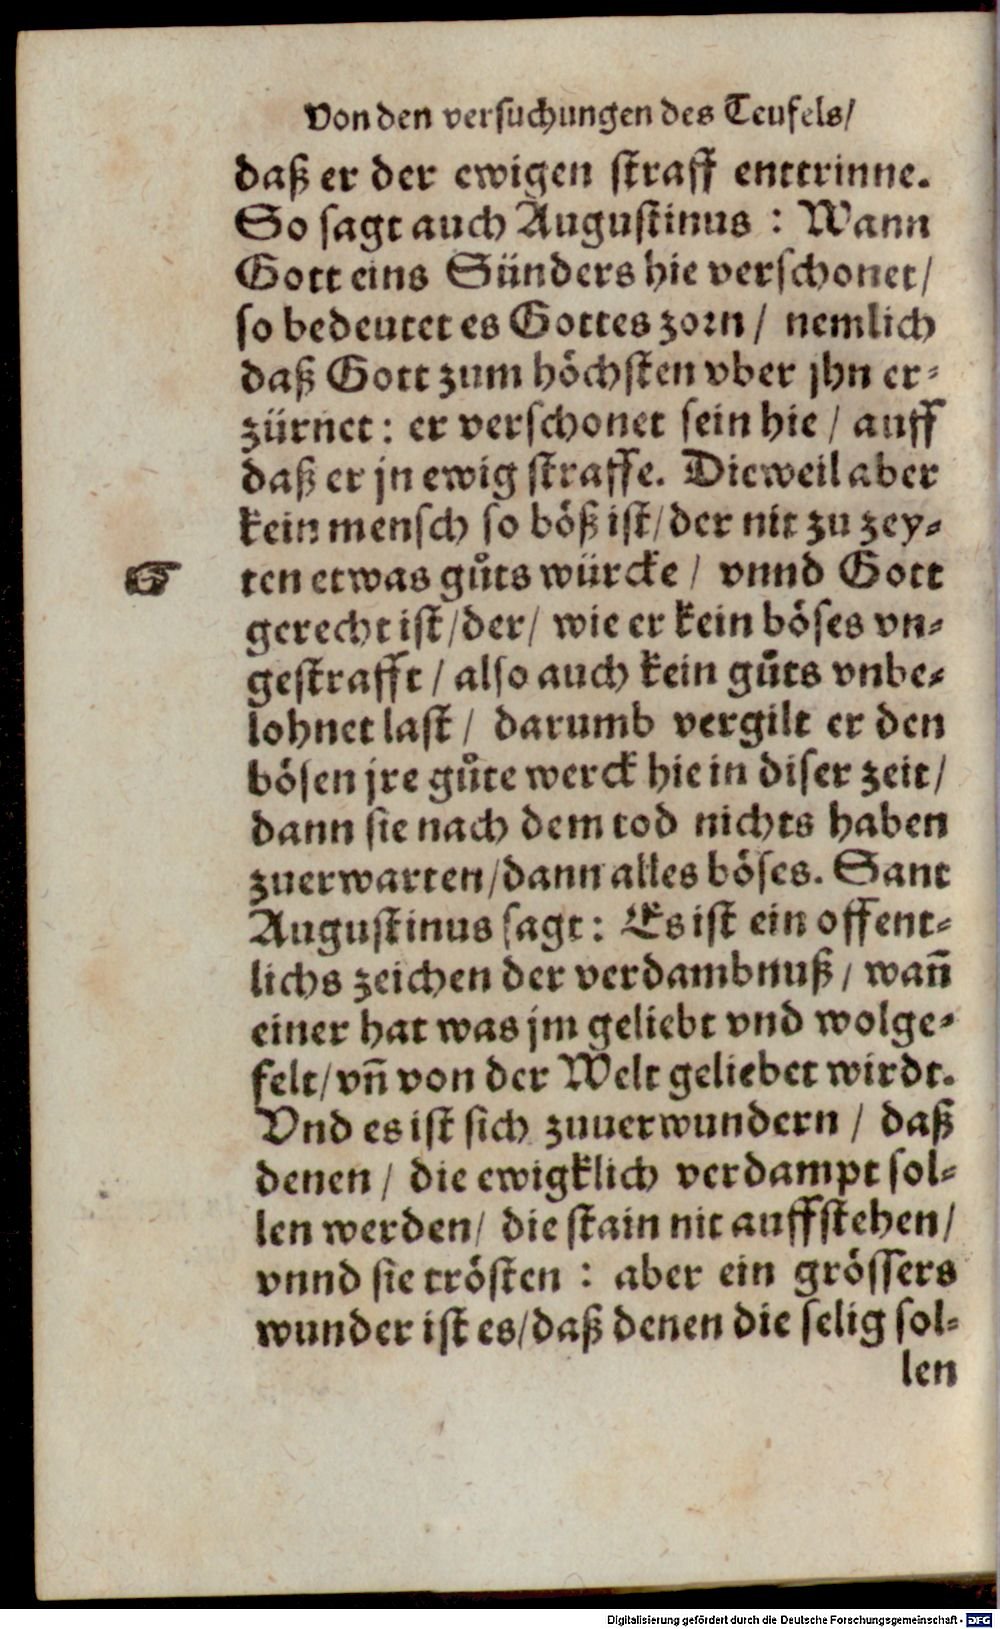 Von den versuchungen des Teufels/
daß er der ewigen straff enttrinne.
So sagt auch Augustinus : Wann
Gott eins Sünders hie verschonet/
so bedeutet es Gottes zorn / nemlich
daß Gott zum höchsten vber jhn er-
zürnet : er verschonet sein hie / auff
daß er jn ewig straffe. Dieweil aber
kein mensch so böß ist/ der nit zu zey-
☞ ten etwas gůts würcke / vnnd Gott
gerecht ist/der/ wie er kein böses vn-
gestrafft / also auch kein gůts vnbe-
lohnet last / darumb vergilt er den
bösen jre gůte werck hie in diser zeit/
dann sie nach dem tod nichts haben
zuerwarten/dann alles böses. Sant
Augustinus sagt : Es ist ein offent-
lichs zeichen der verdambnuß / wañ
einer hat was jm geliebt vnd wolge-
felt/vñ von der Welt geliebet wirdt.
Vnd es ist sich zuuerwundern / daß
denen / die ewigklich verdampt sol-
len werden/ die stain nit auffstehen/
vnnd sie trösten : aber ein grössers
wunder ist es/daß denen die selig sol-
len
Digitalisierung gefördert durch die Deutsche Forschungsgemeinschaft - DFG